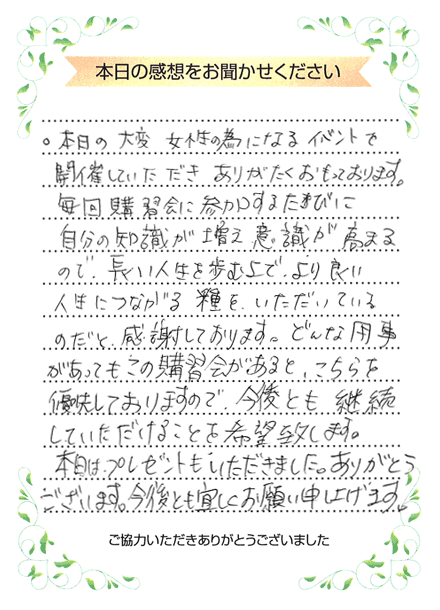 本日の感想をお聞かせください
○本日の大変 女性の為になるイベントで
開催していただき ありがたくおもっております。
毎回購習会に参加するたびに
自分の知識が増え意識が高まる
ので、長い人生を歩む上で、より良い
人生につながる種を、いただいている
のだと、感謝しております。どんな用事
があってもこの購習会があると、こちらを
優先しておりますので、今後とも継続
していただけることを希望致します。
本日は、プレゼントもいただきました。ありがとう
ございます。今後とも宜しくお願い申し上げます。
ご協力いただきありがとうございました